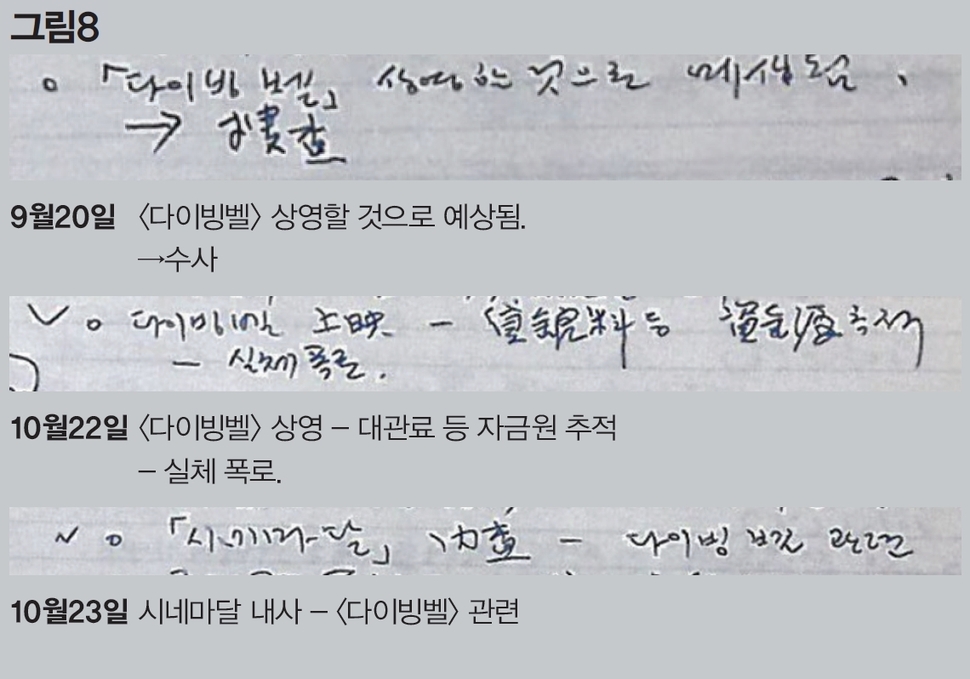 그림8
○ 「다이빙 벨」 상영할 것으로 예상됨.
→
9월20일 〈다이빙벨〉 상영할 것으로 예상됨.
→수사
○ 다이빙벨 上映 – 貸館料 등 資金源 추적
– 실체 폭로.
10월22일 〈다이빙벨〉 상영 – 대관료 등 자금원 추적
– 실체 폭로.
○ 「시네마달」 內査 – 다이빙 벨 관련
10월23일 시네마달 내사 – 〈다이빙벨〉 관련